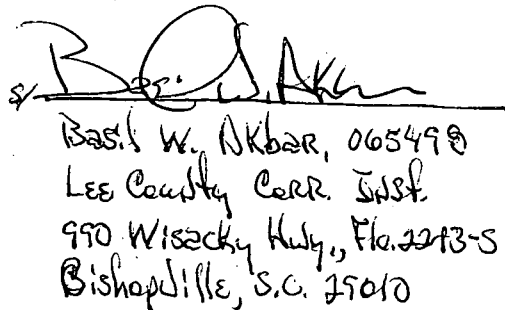 s/ Basil W. Akbar
Basil W. Akbar, 065498
Lee County Corr. Inst.
990 Wisacky Hwy., Flo.2213-S
Bishopville, S.C. 29010